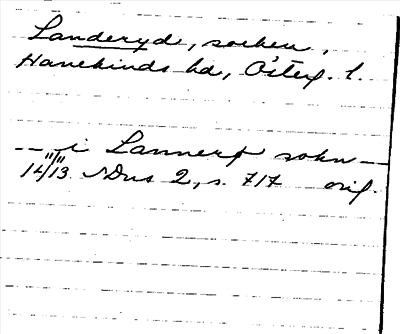 Landeryds, socken,
Hanekinds hd, Österg. l.
— i Lannerz sokn —
14 11/11 13 SDns 2, s. 717 orig.